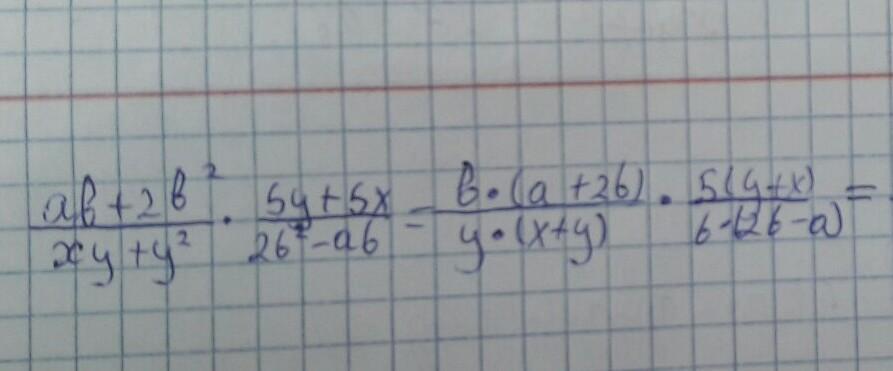 (ab+2b²)/(xy+y²) · (5y+5x)/(2b²-ab) = (b·(a+2b))/(y·(x+y)) · (5(y+x))/(b·(2b-a)) =